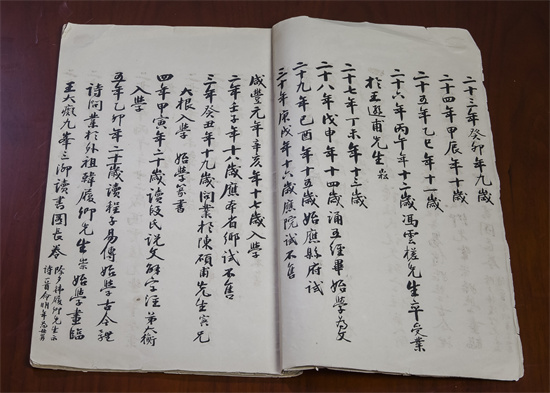 二十三年癸卯年九歲
二十四年甲辰年十歲
二十五年乙巳年十一歲
二十六年丙午年十二歲馮雲槎先生卒受業
於王遜甫先生
二十七年丁未年十三歲
二十八年戊申年十四歲誦五經畢始學為文
二十九年己酉年十五歲始應縣府試
三十年庚戌年十六歲應院試不售
咸豐元年辛亥年十七歲入學
二年壬子年十八歲應本省鄉試不售
三年癸丑年十九歲問業於陳碩甫先生奐兄
大根入學 始學篆書
四年甲寅年二十歲讀段氏說文解字注弟大衡
入學
五年乙卯年二十一歲讀程子易傳始學古今體
詩問業於外祖韓履卿先生崇始學畫臨
王大癡九峯三泖讀書圖長卷
除夕拜履卿先生示
詩一首